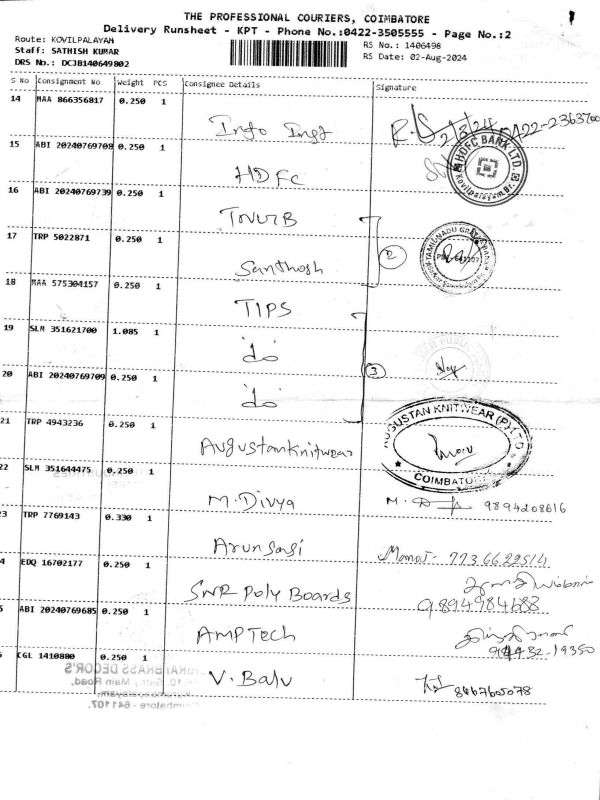 THE PROFESSIONAL COURIERS, COIMBATORE
Delivery Runsheet - KPT - Phone No.:0422-3505555 - Page No.:2
Route: KOVILPALAYAM
Staff: SATHISH KUMAR
DRS No.: DCJB140649802
RS No.: 1406498
RS Date: 02-Aug-2024
S No Consignment No Weight PCS Consignee Details Signature
14 MAA 866356817 0.250 1 Info Ingz
15 ABI 20240769708 0.250 1 HDFC
HDFC BANK LTD.
Kovilpalayam Br.
16 ABI 20240769739 0.250 1 TNUTB
17 TRP 5022871 0.250 1 Santhosh
2
TAMIL NADU GRAMA BANK
18 MAA 575304157 0.250 1 TIPS
19 SLM 351621700 1.085 1 do
20 ABI 20240769709 0.250 1 do
3
21 TRP 4943236 0.250 1 Augustanknitwear
AUGUSTAN KNITWEAR (P) LTD
COIMBATO
22 SLM 351644475 0.250 1 M. Divya M. D 9894208616
3 TRP 7769143 0.330 1 Arunsagi 7736622514
4 EDQ 16702177 0.250 1 SNR Poly Boards 9894984688
5 ABI 20240769685 0.250 1 AMP Tech 94432-19350
CGL 1410880 0.250 1 V. Balu 8667605078
BRASS DECOR'S
Main Road,
Coimbatore - 641107.